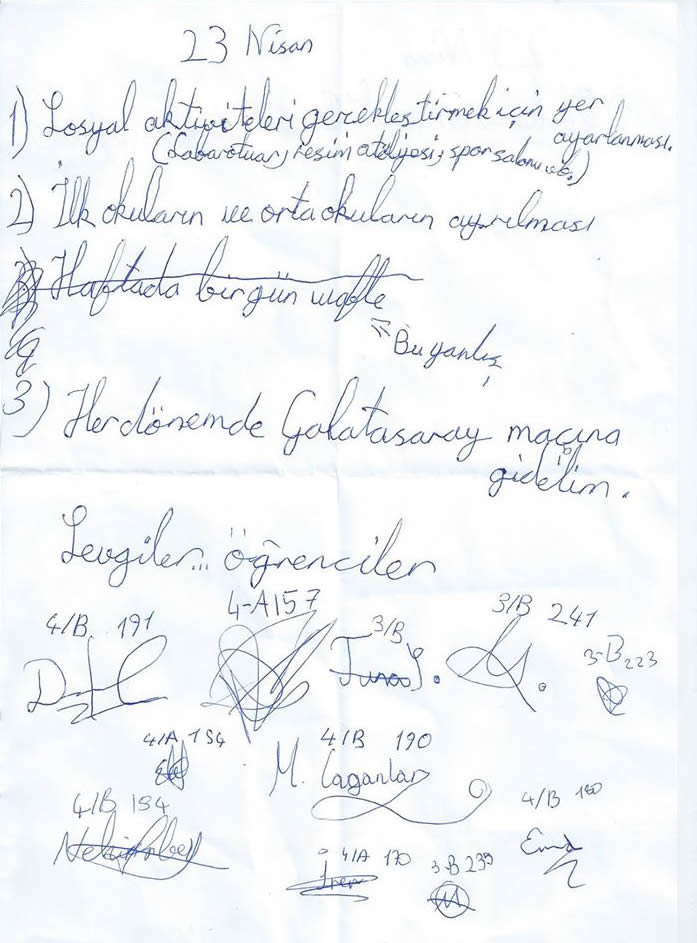 23 Nisan
1) Sosyal aktiviteleri gerçekleştirmek için yer
ayarlanması.
(Labarotuar, resim atolyesi, spor salonu vb.)
2) İlk okuların ve orta okuların ayrılması
Haftada bir gün waffle
Bu yanlış
3) Her dönemde Galatasaray maçına
gidelim.
Sevgiler... öğrenciler
4/B 191
4-A 157
3/B
3/B 241
3-B 223
4/A 154
4/B 190
M. Çaganlar
4/B 154
4/B 180
4/A 170
İren
3-B 239